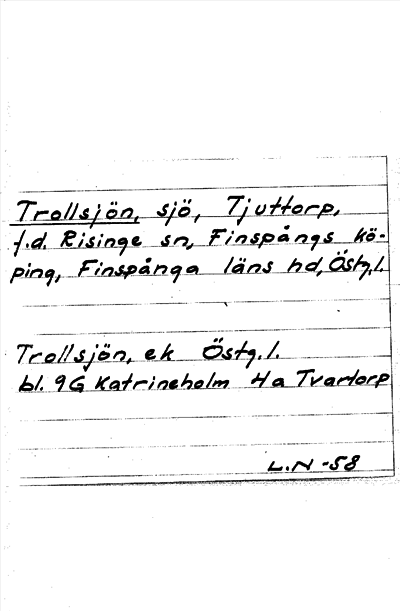 Trollsjön, sjö, Tjuttorp,
f.d. Risinge sn, Finspångs kö-
ping, Finspånga läns hd, Östg.l.
Trollsjön, ek Östg.l.
bl. 9G Katrineholm 4a Tvartorp
L.N -58